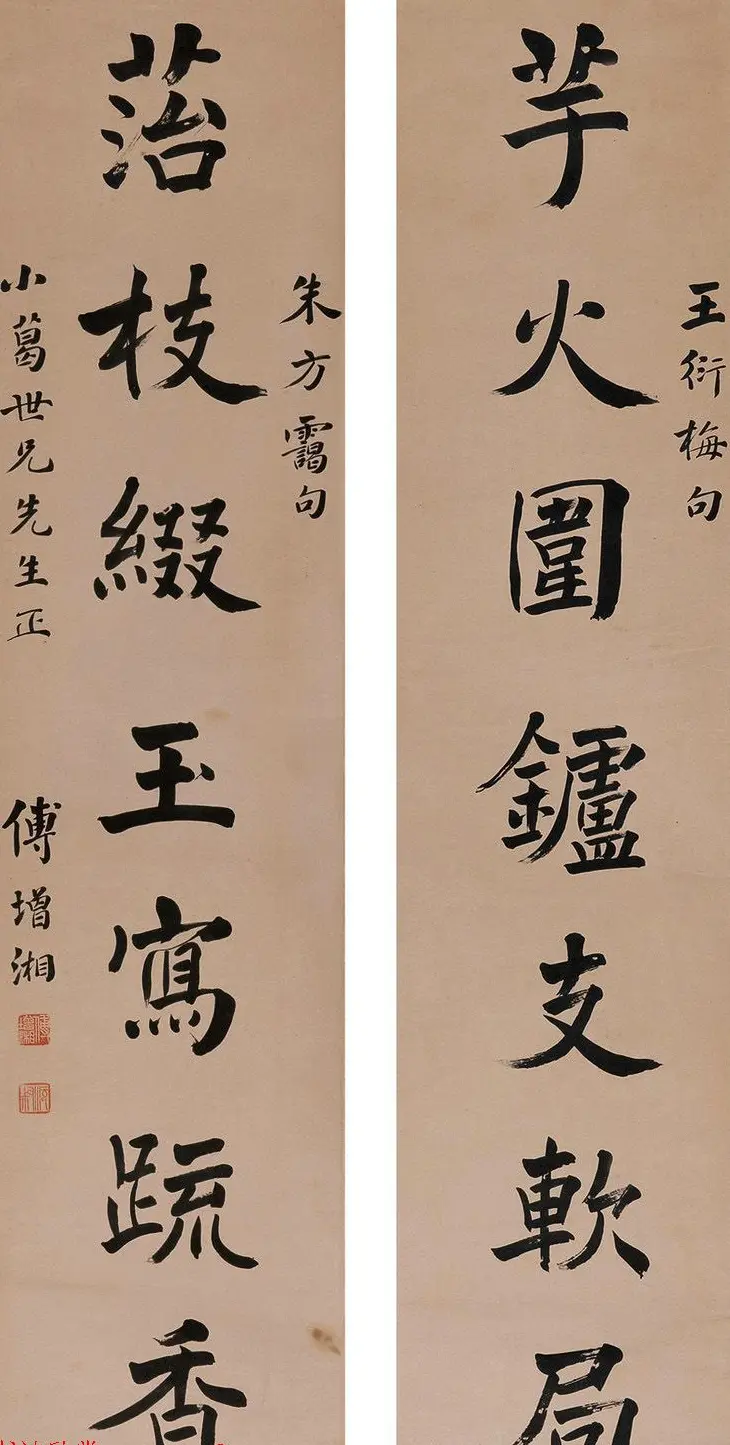 王衍梅句
芋火圍鑪支軟局
朱方靄句
菭枝綴玉寫疏香
小葛世兄先生正
傅增湘